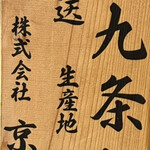 九条
送 生産地
株式会社 京